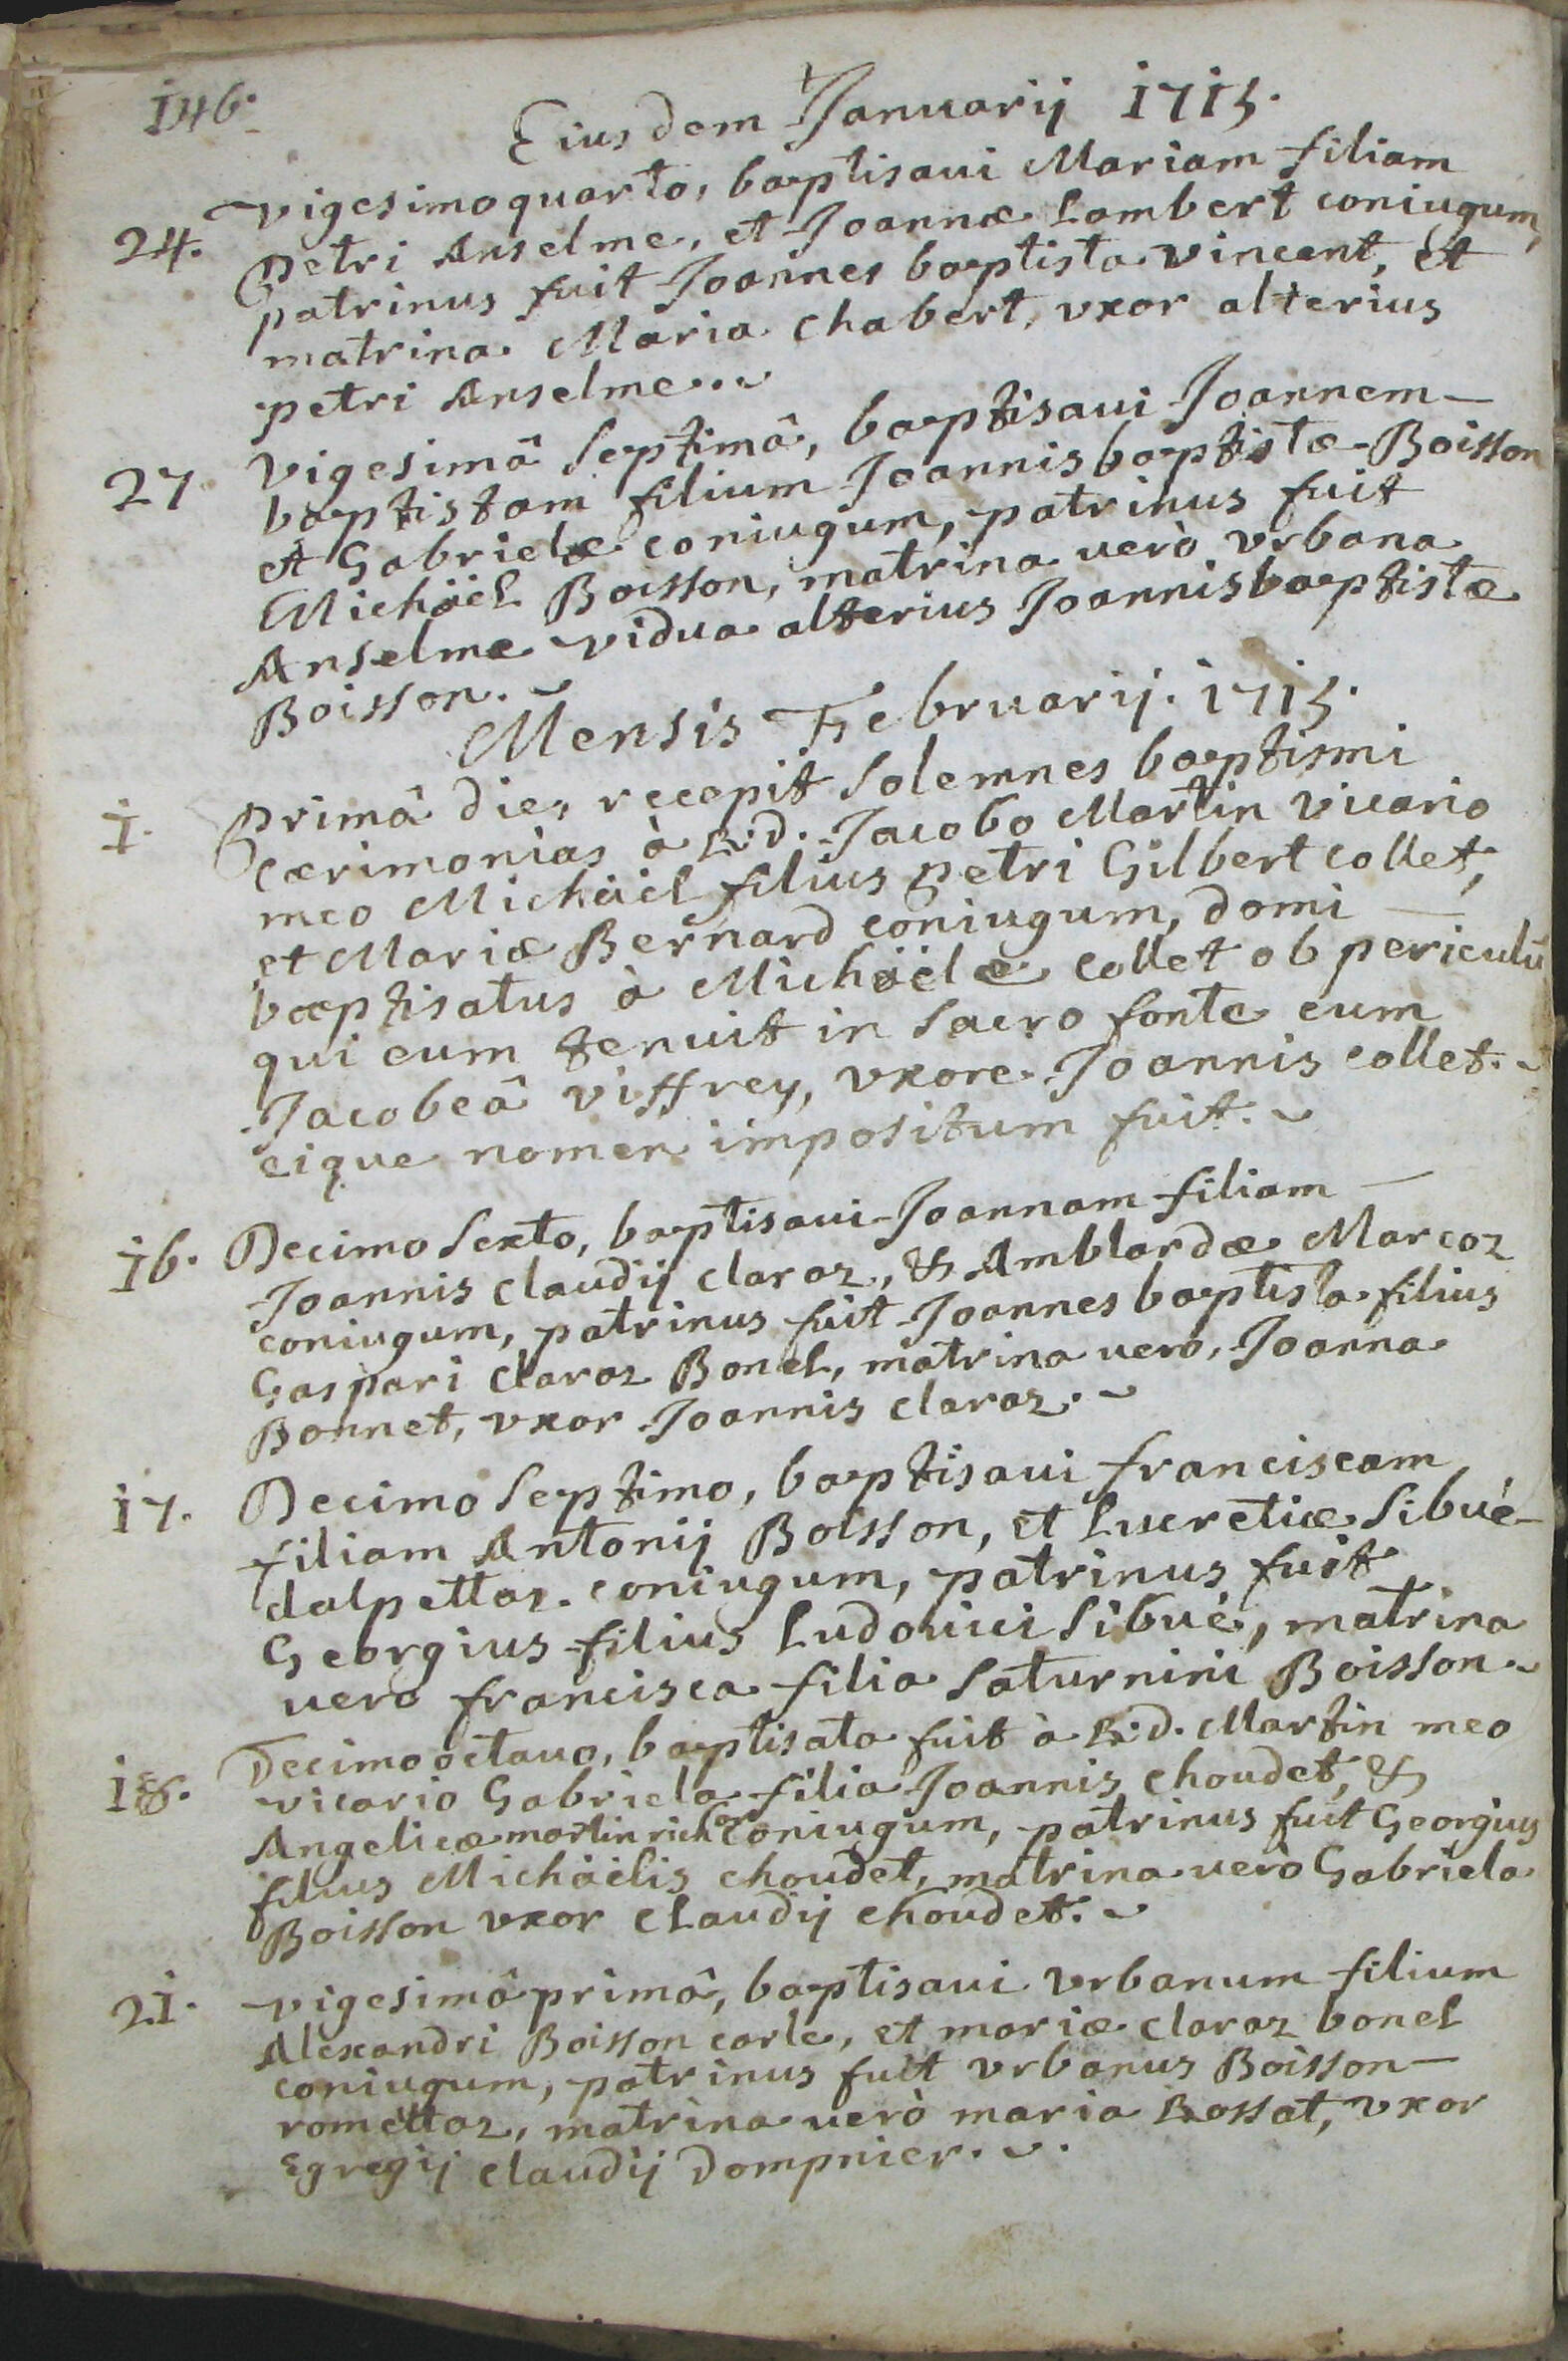 146.
Eiusdem Januarij 1715.
24. vigesimoquarto, baptisaui Mariam filiam
Petri Anselme, et Joannæ Lambert coniugum,
patrinus fuit Joannes baptista vincent, et
matrina Maria chabert, vxor alterius
petri Anselme..
27 vigesimâ septimâ, baptisaui Joannem-
baptistam filium Joannisbaptistæ Boisson
et Gabrielæ coniugum, patrinus fuit
Michäel Boisson, matrina uerò vrbana
Anselme vidua alterius Joannisbaptistæ
Boisson.
Mensis Februarij. 1715.
1. Primâ die, recepit solemnes baptismi
cærimonias à R.d. Jacobo Martin vicario
meo Michäel filius petri Gilbert collet,
et Mariæ Bernard coniugum, domi
baptisatus à Michäele collet ob periculū
qui eum tenuit in sacro fonte cum
Jacobeâ viffrey, vxore Joannis collet.
eique nomen impositum fuit.
16. Decimo sexto, baptisaui Joannam filiam
Joannis claudij claraz, & Amblardæ Marcoz
coniugum, patrinus fuit Joannes baptista filius
Gaspari claraz Bonel, matrina uerò, Joanna
Bonnet, vxor Joannis claraz.
17. Decimo septimo, baptisaui franciscam
filiam Antonij Boisson, et Lucretiæ Sibué-
dalpettaz coniugum, patrinus fuit
Georgius filius Ludouici Sibué, matrina
uero francisca filia Saturnini Boisson.
18. Decimooctauo, baptisata fuit à R.d. Martin meo
vicario Gabriela filia Joannis choudet, &
Angelicæ martin rich coniugum, patrinus fuit Georgius
filius Michäelis choudet, matrina uerò Gabriela
Boisson vxor claudij choudet.
21. vigesimâprimâ, baptisaui vrbanum filium
Alexandri Boisson carle, et mariæ claraz bonel
coniugum, patrinus fuit vrbanus Boisson-
romettaz, matrina uerò maria Rossat, vxor
Egregij claudij Dompnier.